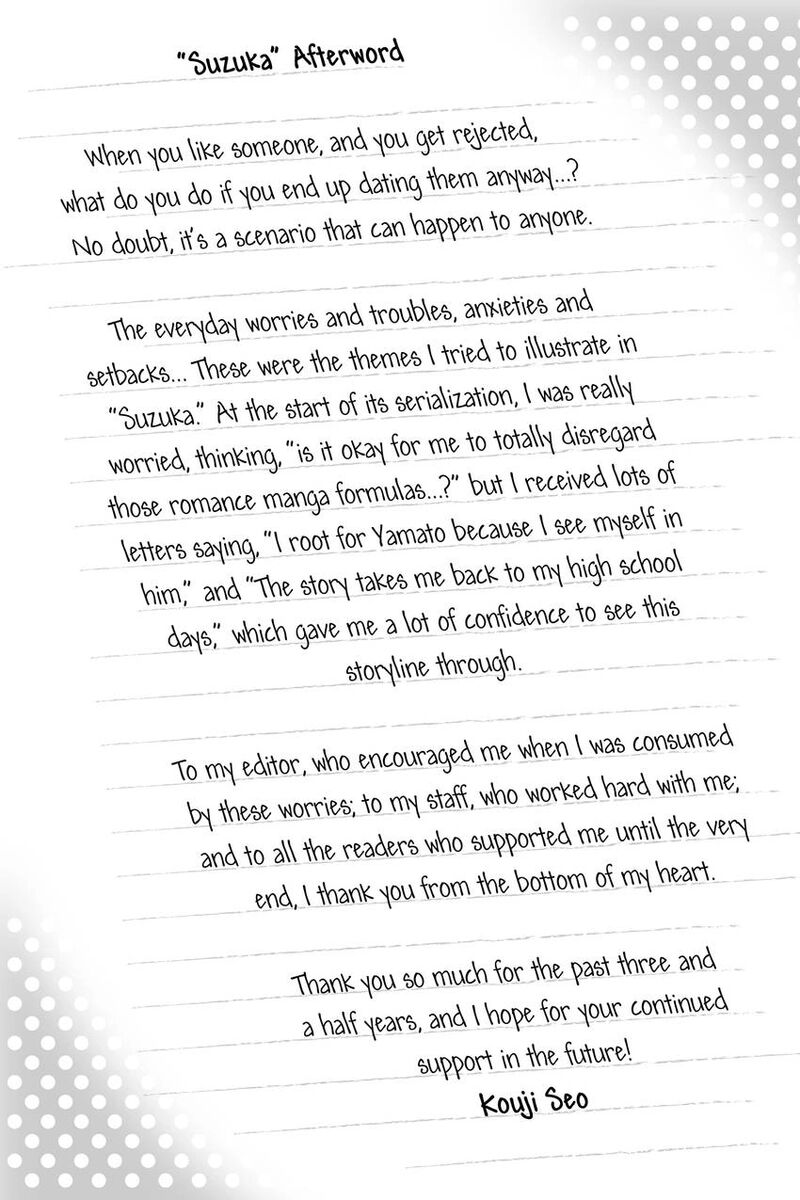 "Suzuka" Afterword
When you like someone, and you get rejected,
what do you do if you end up dating them anyway...?
No doubt, it's a scenario that can happen to anyone.
The everyday worries and troubles, anxieties and
setbacks... These were the themes I tried to illustrate in
"Suzuka." At the start of its serialization, I was really
worried, thinking, "is it okay for me to totally disregard
those romance manga formulas...?" but I received lots of
letters saying, "I root for Yamato because I see myself in
him," and "The story takes me back to my high school
days," which gave me a lot of confidence to see this
storyline through.
To my editor, who encouraged me when I was consumed
by these worries; to my staff, who worked hard with me;
and to all the readers who supported me until the very
end, I thank you from the bottom of my heart.
Thank you so much for the past three and
a half years, and I hope for your continued
support in the future!
Kouji Seo